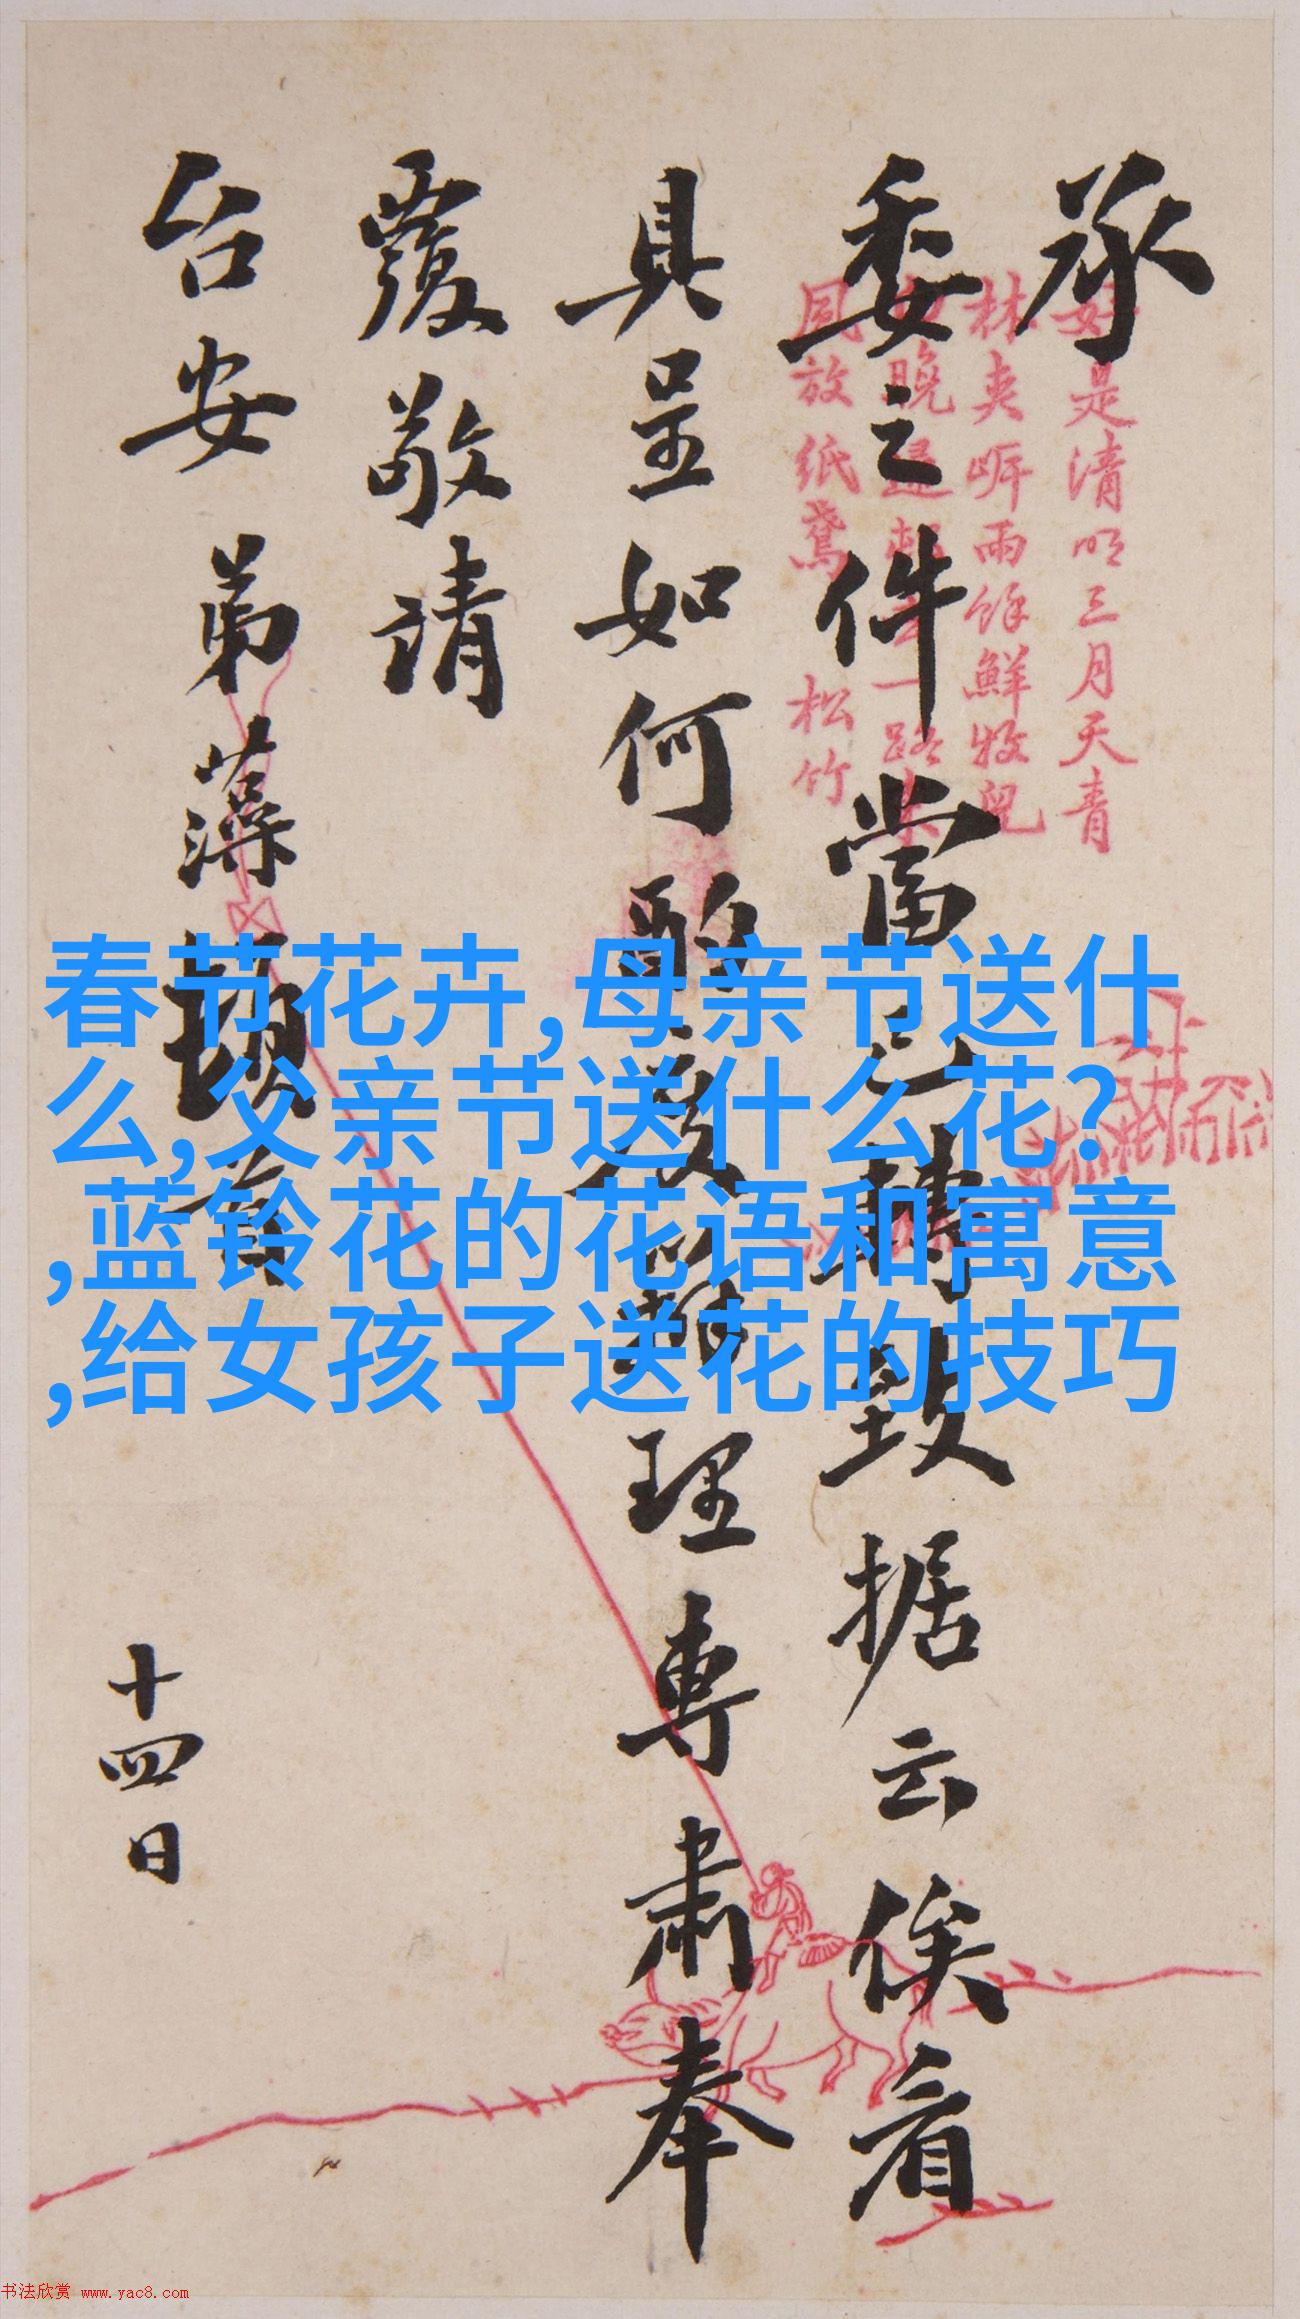 承
委之件當已轉致據云俟看
具呈如何酌核辦理專肅奉
覆敬請
台安 弟藻頓首
十四日
好是清明三月天青
林夹
雨餘鮮牧兒
晚歸
一路
同放纸鸢 松竹
春节花卉,母亲节送什
么,父亲节送什么花?
,蓝铃花的花语和寓意
,给女孩子送花的技巧
书法欣赏 www.yac8.com